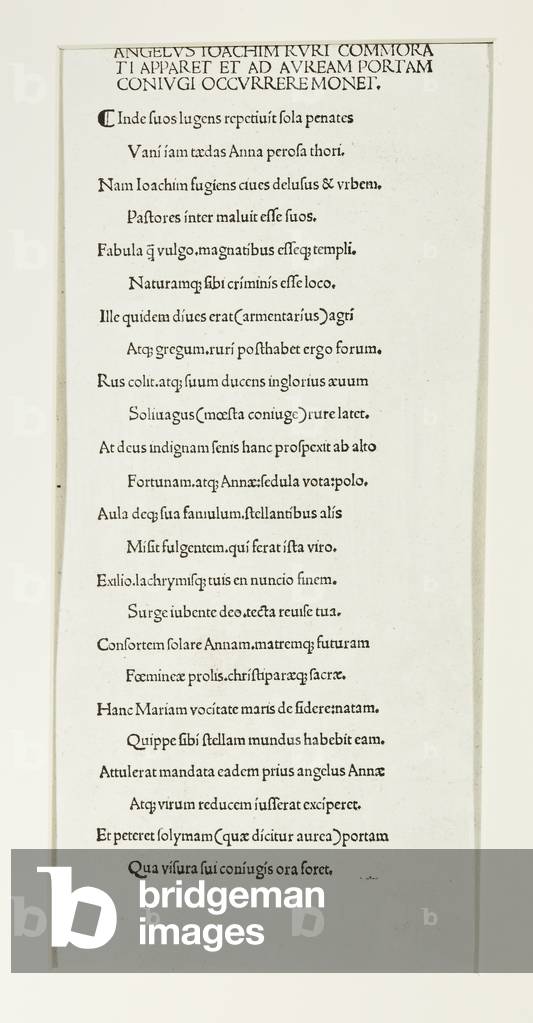 ANGELVS IOACHIM RVRI COMMORA
TI APPARET ET AD AVREAM PORTAM
CONIVGI OCCVRRERE MONET.
Inde ſuos lugens repetiuit ſola penates
Vani iam tædas Anna peroſa thori.
Nam Ioachim fugiens ciues deluſus & vrbem.
Paſtores inter maluit eſſe ſuos.
Fabula q̃ vulgo.magnatibus eſſeq; templi.
Naturamq; ſibi criminis eſſe loco.
Ille quidem diues erat(armentarius)agri
Atq; gregum.ruri poſthabet ergo forum.
Rus colit.atq; ſuum ducens inglorius æuum
Soliuagus(mœſta coniuge)rure latet.
At deus indignam ſenis hanc proſpexit ab alto
Fortunam.atq; Annæ:ſedula vota:polo.
Aula deq; ſua famulum.ſtellantibus alis
Miſit fulgentem.qui ferat iſta viro.
Exilio.lachrymiſq; tuis en nuncio finem.
Surge iubente deo.tecta reuiſe tua.
Conſortem ſolare Annam.matremq; futuram
Fœmineæ prolis.chriſtiparæq; ſacræ.
Hanc Mariam vocitate maris de ſidere:natam.
Quippe ſibi ſtellam mundus habebit eam.
Attulerat mandata eadem prius angelus Annæ
Atq; virum reducem iuſſerat exciperet.
Et peteret ſolymam(quæ dicitur aurea)portam
Qua viſura ſui coniugis ora foret.
b bridgeman
images